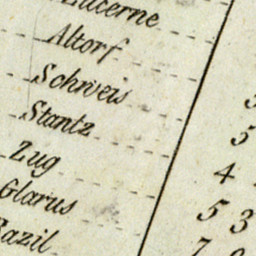 Lucerne
Altorf
Schweis
Stantz 5
Zug 4
Glarus 5 3
Bazil 7